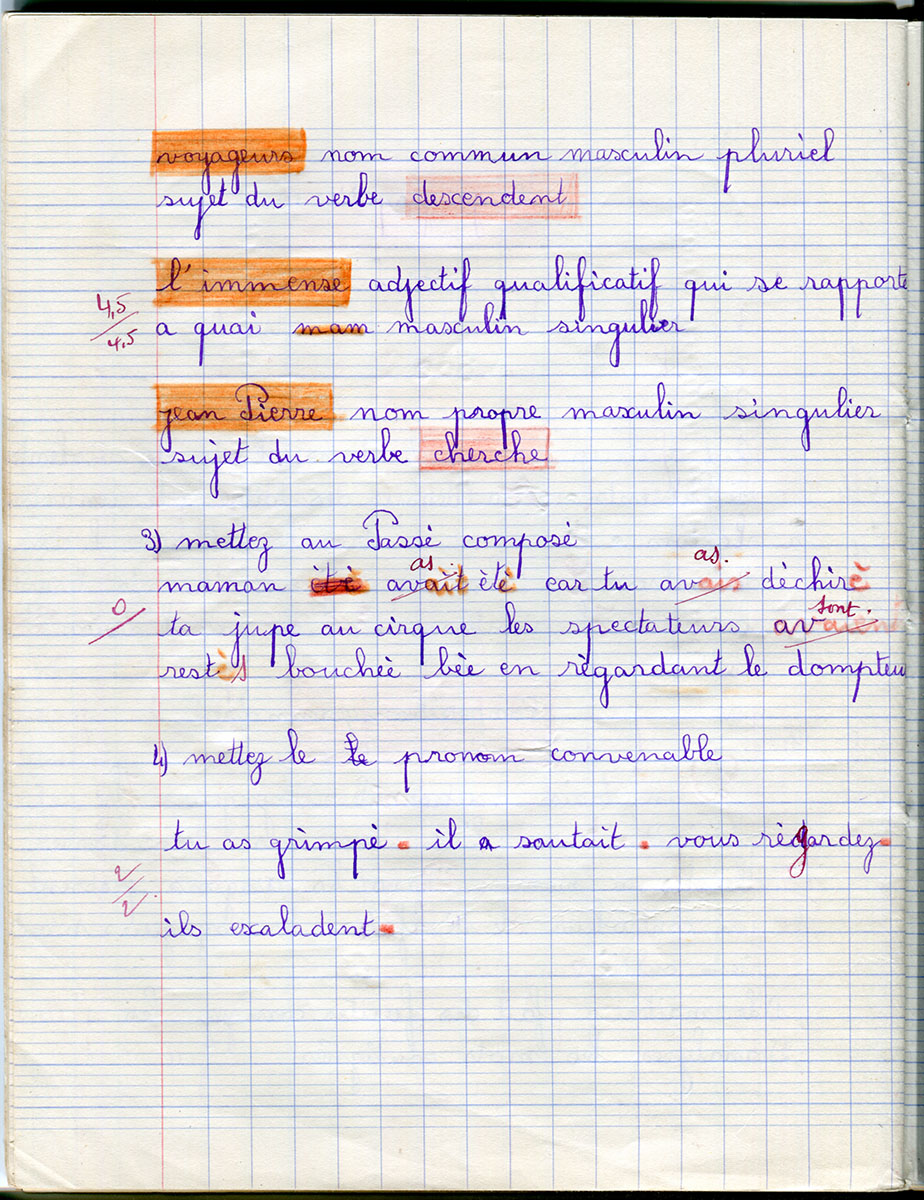 voyageurs nom commun masculin pluriel
sujet du verbe descendent
l'immense adjectif qualificatif qui se rapporte
4,5
a quai mam masculin singulier
4,5
jean Pierre nom propre masculin singulier
sujet du verbe cherche
3) mettez au Passé composé
as. as.
maman été avait été car tu avais déchiré
0 sont.
ta jupe au cirque les spectateurs avaient
restés bouchée bée en règardant le dompteu
4) mettez le le pronom convenable
tu as grimpé. il a sautait. vous règardez.
2
2
ils exaladent.